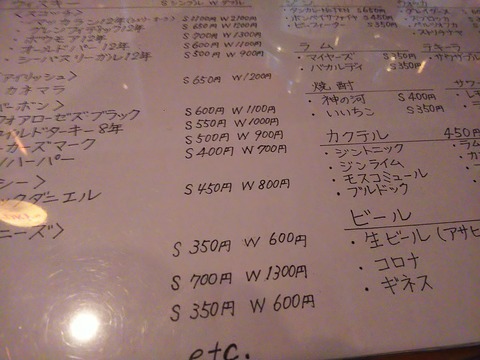 ウィスキー S シングル W ダブル
・マッカラン12年 S 1100円 W 2100円
・グレンフィディック12年 S 650円 W 1200円
・ボウモア12年 S 700円 W 1300円
・オールドパー 12年 S 600円 W 1100円
・シーバスリーガル 12年 S 500円 W 900円
アイリッシュ>
カネマラ S 650円 W 1200円
バーボン>
フォアローゼズブラック S 600円 W 1100円
ワイルドターキー 8年 S 550円 W 1000円
ーカーズマーク S 500円 W 900円
ハーパー S 400円 W 700円
シー>
ックダニエル S 450円 W 800円
ニーズ>
S 350円 W 600円
S 700円 W 1300円
S 350円 W 600円
etc.
・ビーフィーター S 350円
ラム
・マイヤーズ S 350円
・バカルディ S 350円
テキーラ
焼酎
・神の河 S 400円
・いいちこ S 350円
サワ
カクテル 450円
・ジントニック
・ジンライム
・モスコミュール
・ブルドック
ビール
・生ビール (アサヒ
・コロナ
・ギネス